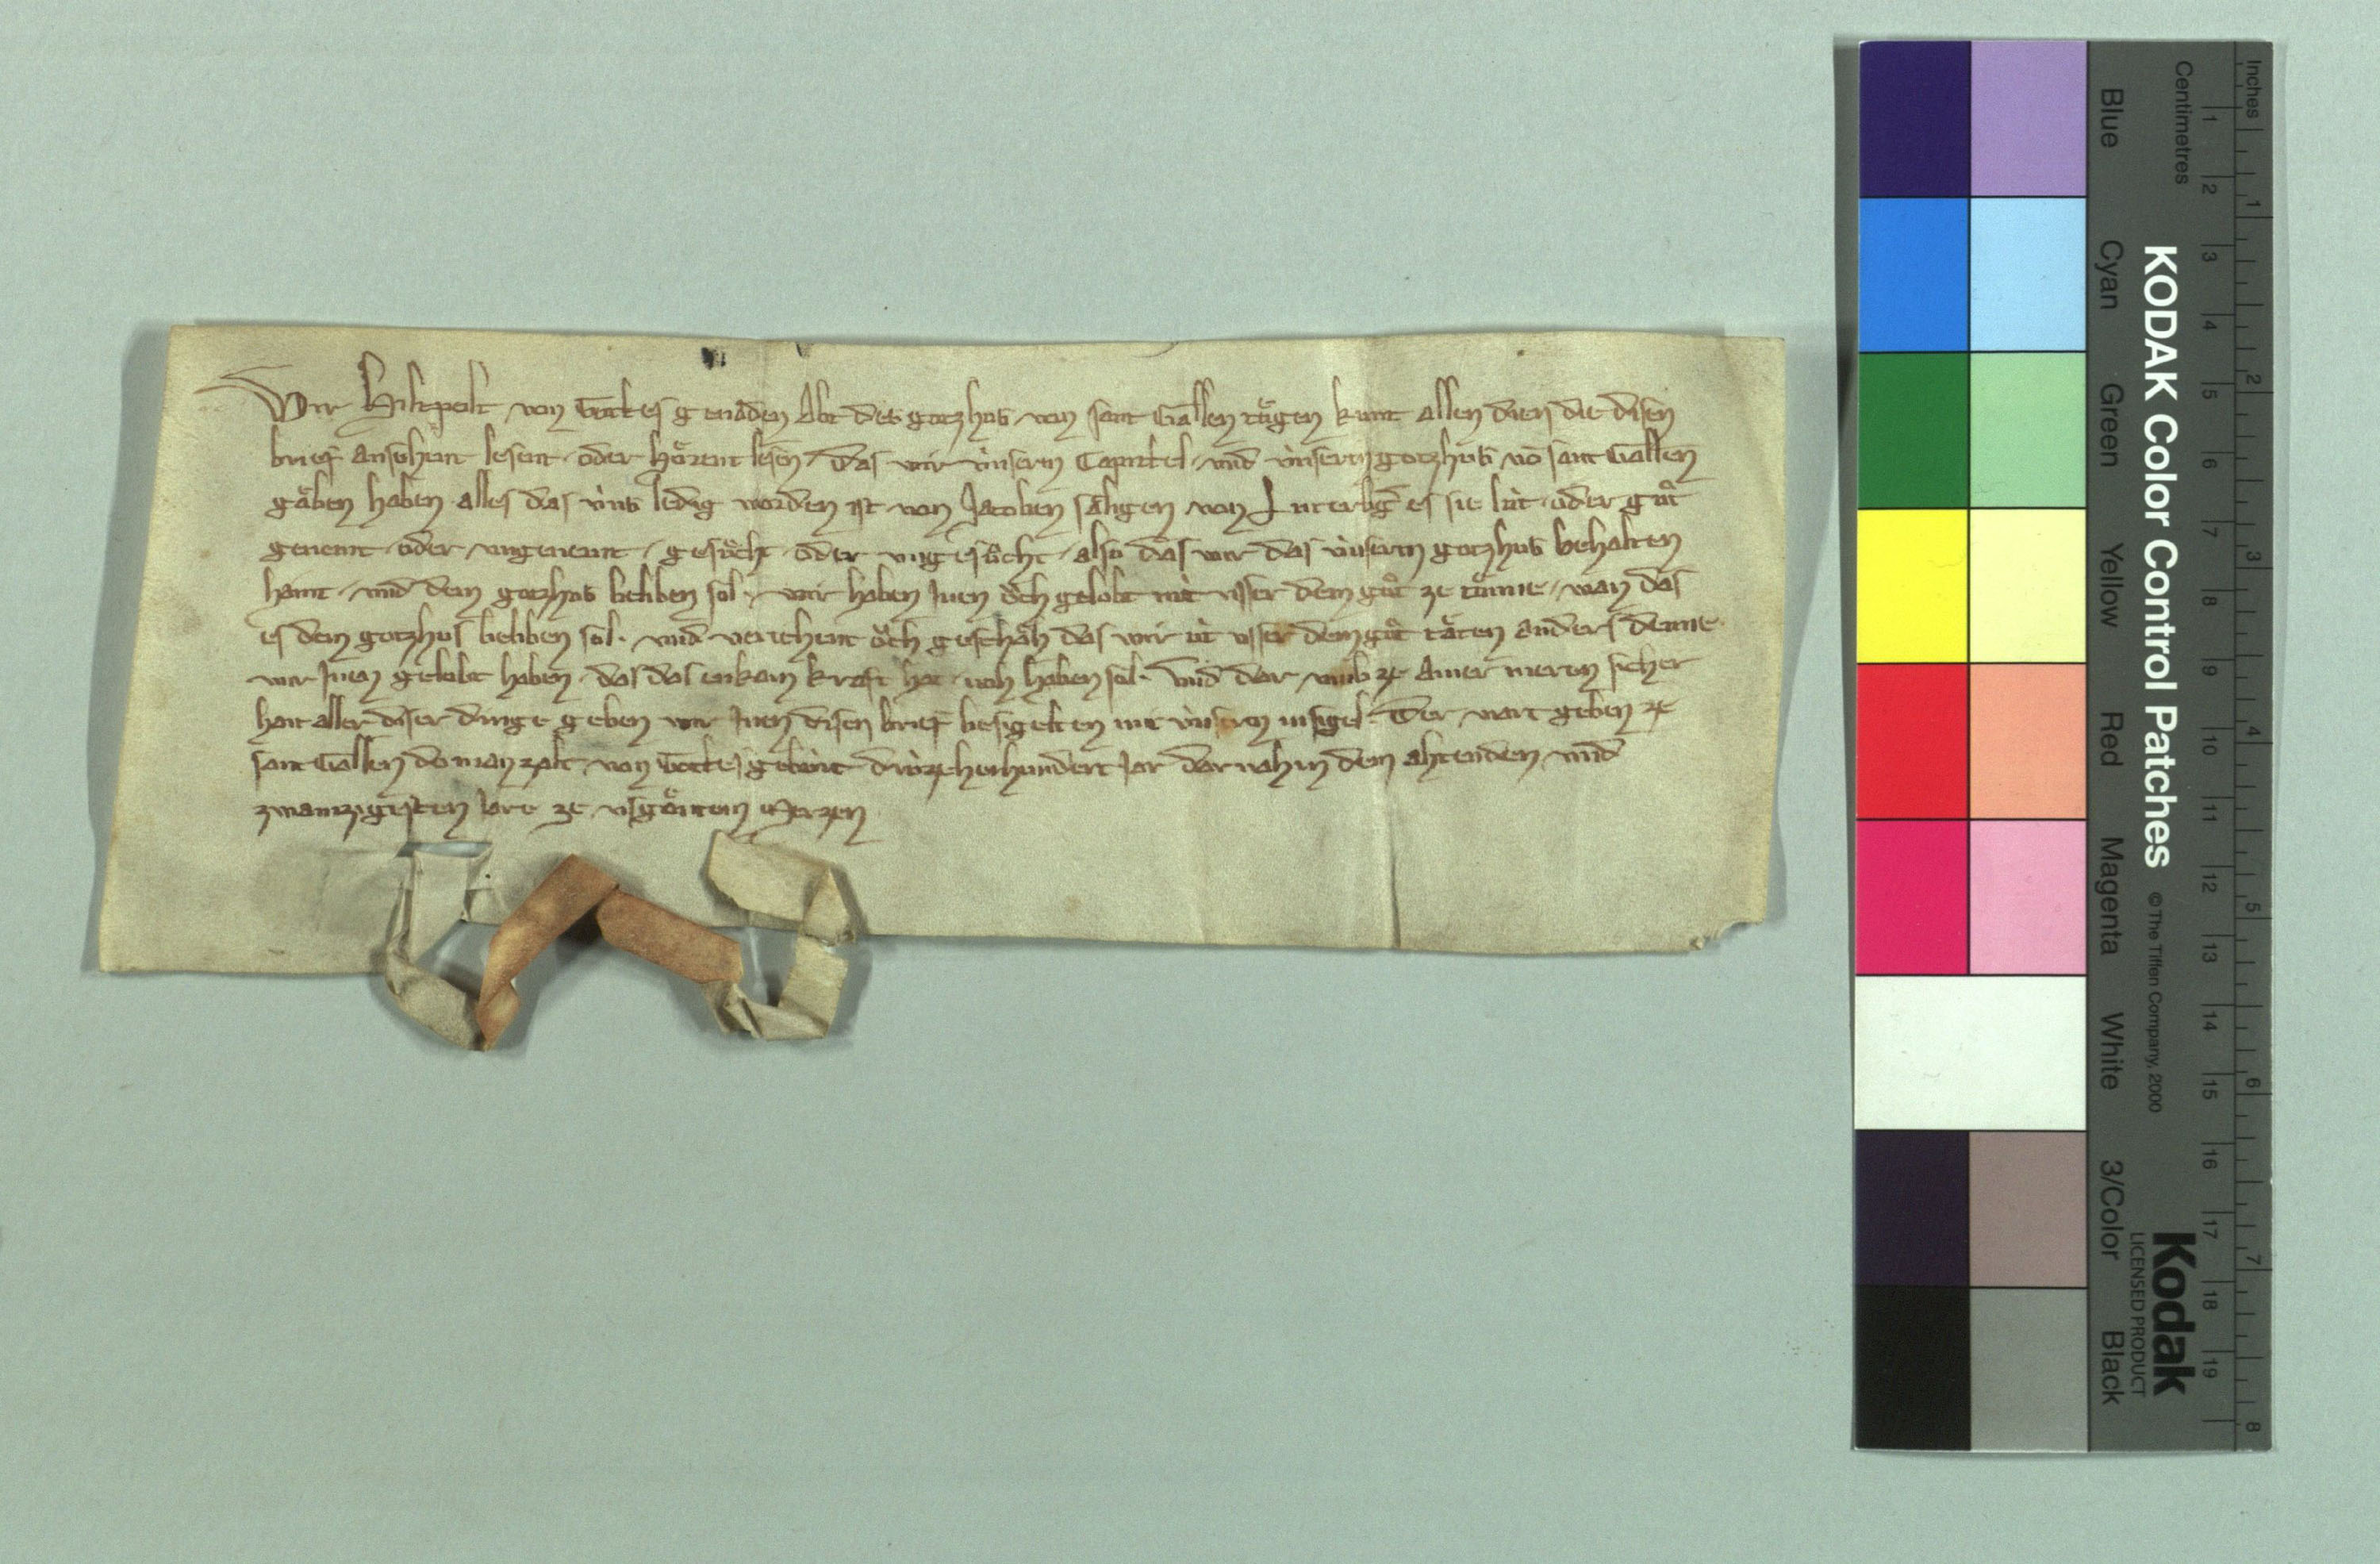 Wir Hiltpolt von Gottes genaden Abt des gotzhus von sant Gallen tuͤgen kunt allen dien die disen
brief ansehent lesent oder hoͤrent lesen / das wir ùnserm Capittel und ùnserm gotzhus vō sant Gallen
gaͤben haben alles das ùns ledig worden ist von Jacoben saͤligen von es sie lùt oder guͦt
genemt oder ungenemt / gesuͦcht oder ungesuͦcht / also das wir das ùnserm gotzhus behalten
haint / und dem gotzhus beliben sol / wir haben inen oͮch gelobt nùt usser dem guͦt ze tuͦnne / wan das
es dem gotzhus beliben sol · und veriehent oͮch geschaͤh das wir ùt usser dem guͦt taͤten anders denne
wir inen gelobt haben das das enkain kraft hat noh haben sol · und dar umb ze ainer meren sicher
hait aller diser dinge geben wir inen disen brief besigelten mit ùnserm insigel · Der wart geben ze
sant Gallen do man zalt von Gottes gebùrt drùzehenhundert jar dar nah in dem ahtenden und
zwainzigesten jare ze usgoͤntem Merzen
KODAK Color Control Patches
© The Tiffen Company, 2000
Kodak
LICENSED PRODUCT
Blue Cyan Green Yellow Red Magenta White 3/Color Black
Centimetres
1 2 3 4 5 6 7 8 9 10 11 12 13 14 15 16 17 18 19
Inches
1 2 3 4 5 6 7 8